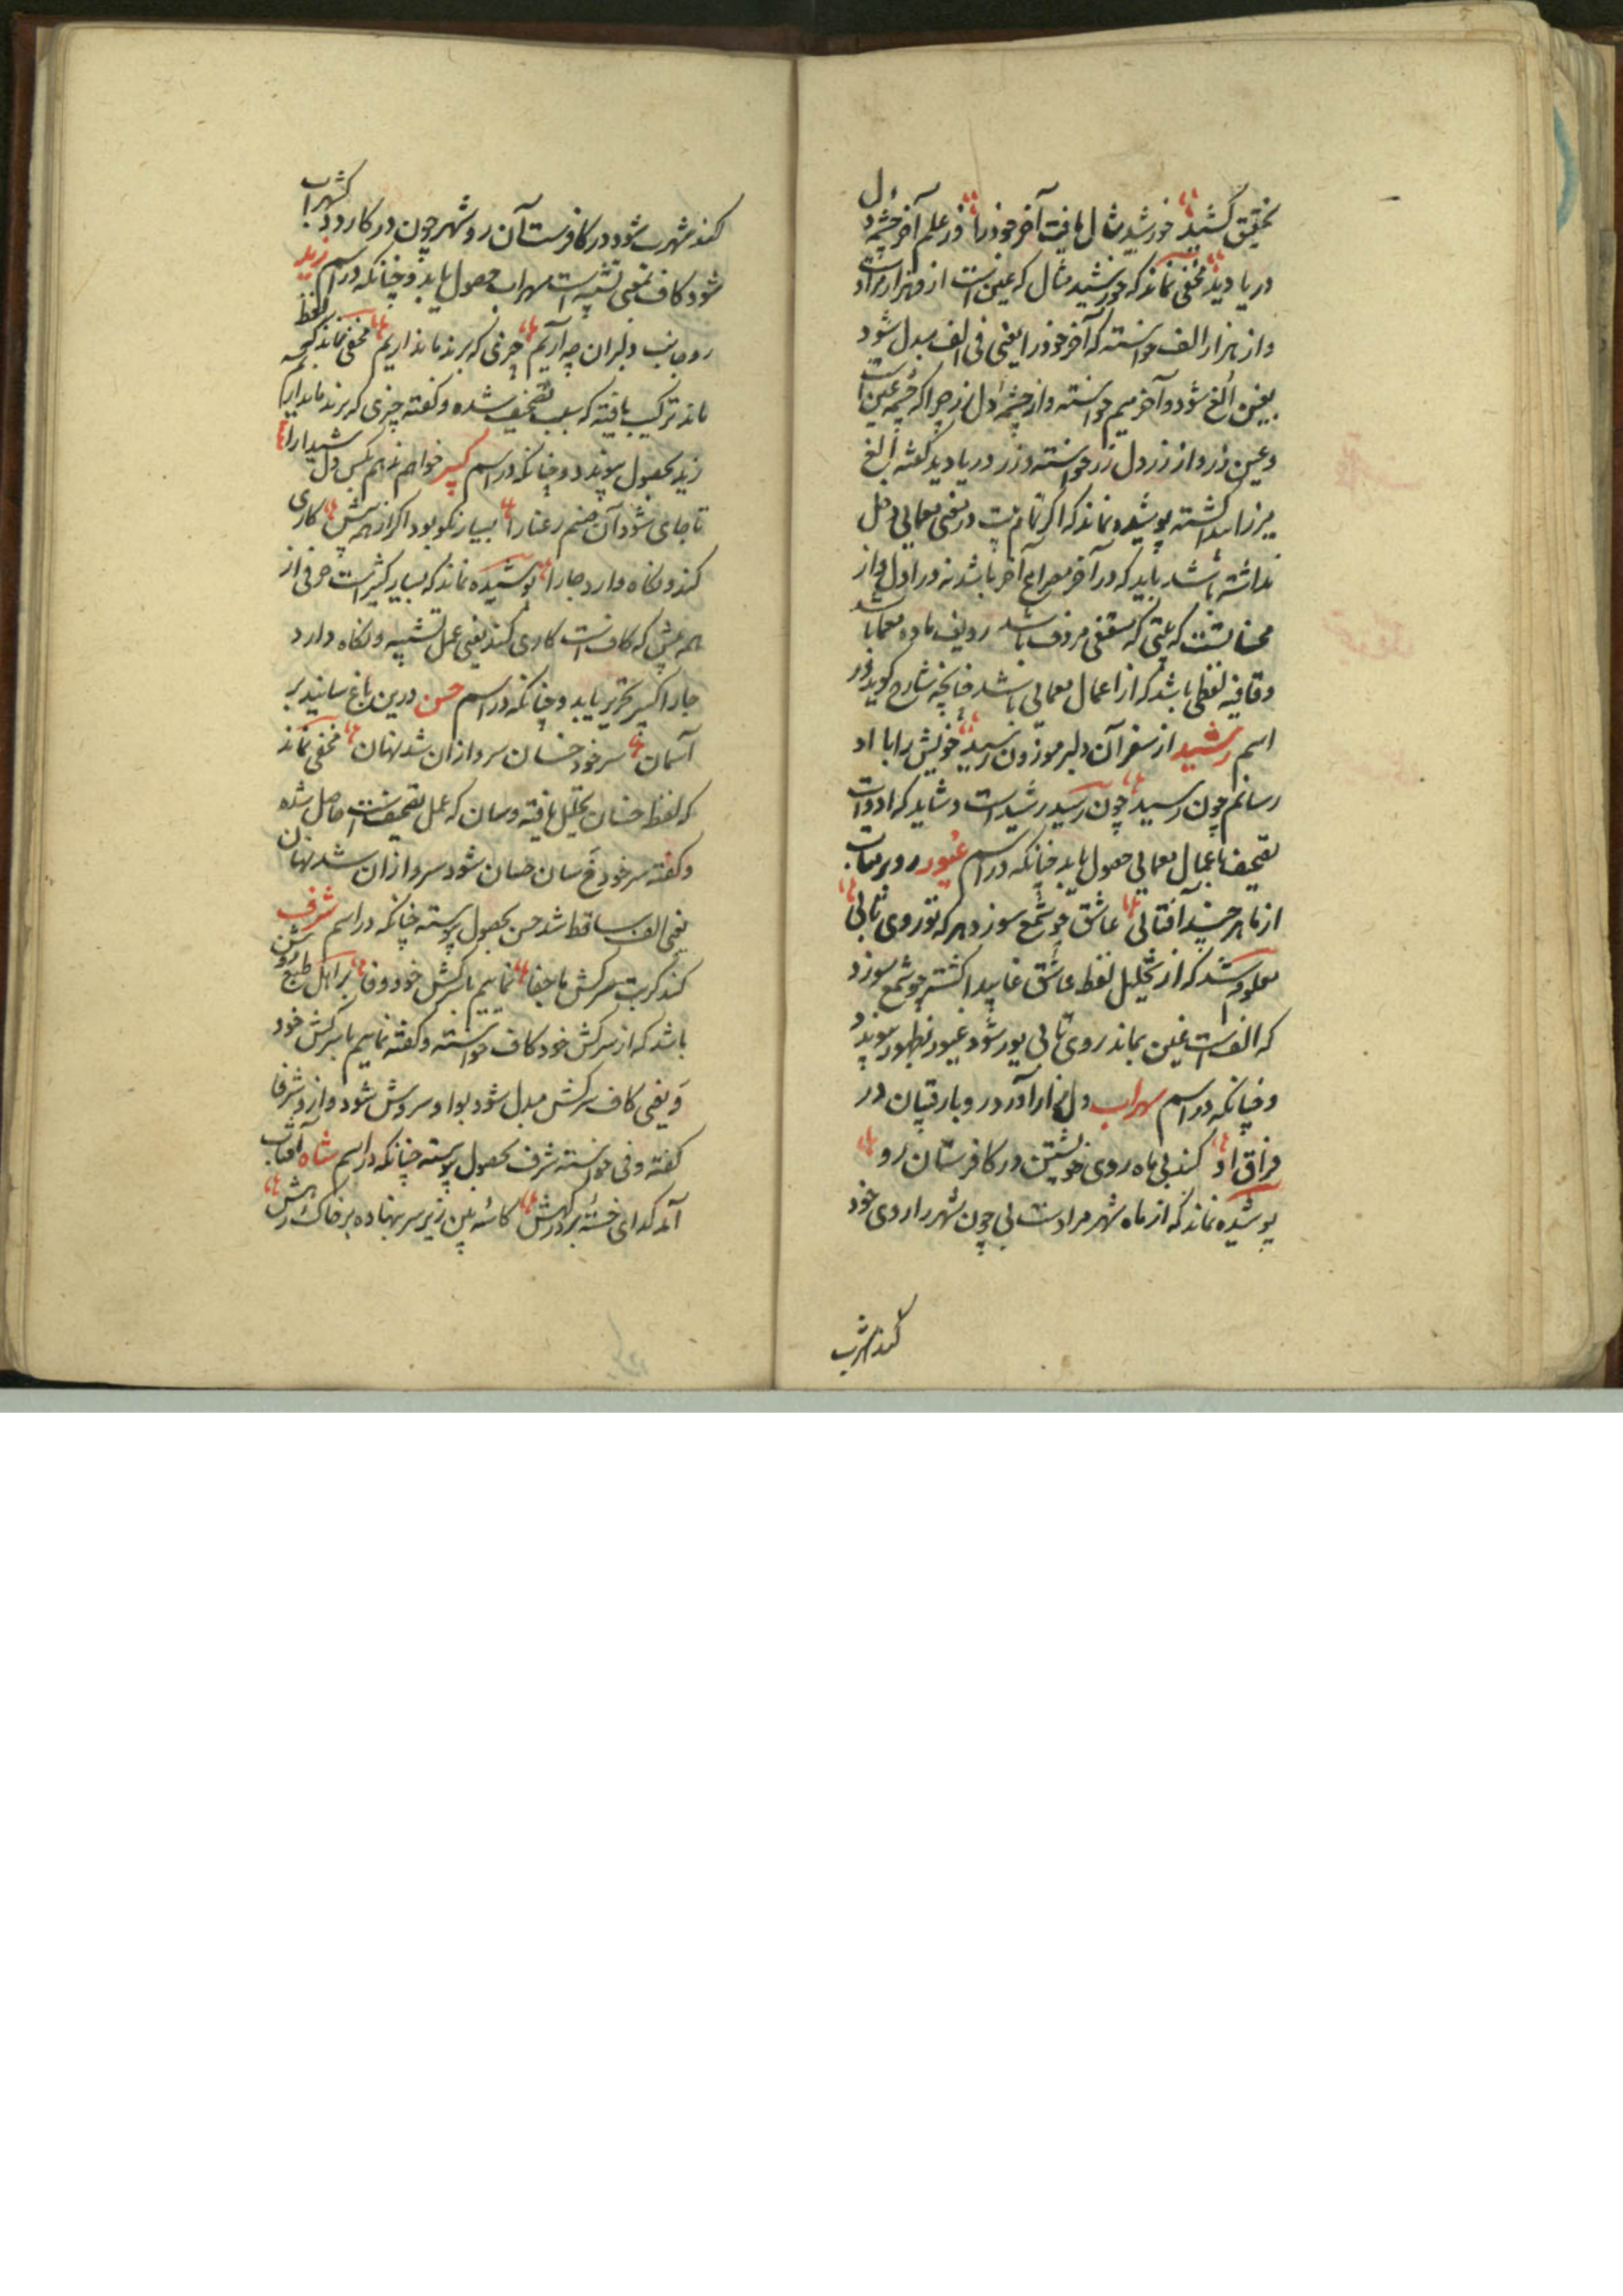 بتحقیق کشید خورشید مثال یافت آخر خود را در علم آخر چشمه دل
دریا دید مخفی نماند که خورشید مثال که عین است از هزار مراد است
و از هزار الف خواسته که آخر خود را یعنی فی الف مبدل شود
بغین الغ شود و آخر میم خواسته و از چشمه دل زر چرا که چشمه عین است
و عین زر و از زر دل زر خواسته و زر در یا دید گفته الغ
میرزا پیدا گشته پوشیده نماند که اگر تمام بیت در معنی معمایی دخل
نداشته باشد باید که در آخر مصراع آخر باشد نه در اول و از
محسنات است که بیتی که مقفی مردف باشد ردیف ماده معما باشد
و قافیه لفظی باشد که از اعمال معمایی باشد چنانچه شارح گوید در
اسم رشید از سفر آن دلبر موزون رسید خویش را با او
رسانم چون رسید چون رسید رشید است و شاید که ادوات
تصحیف باعمال معمایی حصول یابد چنانکه در اسم غیور رو بر متاب
از ما هر چند آفتابی عاشق چو شمع سوزد هر که تو روی تابی
معلوم شد که از تحلیل لفظ عاشق عا پیدا گشته چو شمع سوزد
که الف است غین بماند روی تابی یور شود غیور بظهور پیوندد
و چنانکه در اسم سهراب دل زار آورد رو بار قیبان در
فراق او کند بی ماه روی خویشتن در کافرستان رو
پوشیده نماند که از ماه شهر مراد است بی چون شهر را روی خود
کند شهرب
کند شهرب شود در کافرست آن رو شهر چون در کا رود کشهرا ب
شود کاف بمعنی تشبیه است سهراب حصول یابد و چنانکه در اسم زید
رو جانب دلبران چه آریم چیزی که برند ما نداریم مخفی نماند که لفظ
ماند ترکیب یافته که بسبب تصحیف شده و گفته چیزی که برند ما نداریم
زید بحصول پیوندد و چنانکه در اسم کبیر خواهم ندهم بکس دل شیدا را
تا جای شود آن صنم رعنا را بسیار نکو بود اگر از همه پیش کاری
کند و نگاه دارد جا را پوشیده نماند که بسیار کثیر است حرفی از
همه پیش که کاف است کاری کند یعنی عمل تشبیه و نگاه دارد
جا را کبیر تحریر یابد و چنانکه در اسم حسن درین باغ سانید بر
آسمان سر خود خسان سرو از ان شد نهان مخفی نماند
که لفظ خسان تحلیل یافته و سان که عمل تصحیف است حاصل شده
و گفته سر خود خ سان حسان شود سرو از ان شد نهان
یعنی الف ساقط شد حسن بحصول پیوسته چنانکه در اسم شرف
کند گر بت سرکش ما جفا نماییم با سرکش خود وفا بر اهل طبع روشن
باشد که از سرکش خود کاف خواسته و گفته نماییم با سرکش خود
و یعنی کاف سرکش مبدل شود بواو سروش شود و از و شرفا
گفته وفی خواسته شرف بحصول پیوسته چنانکه در اسم شاه آفتاب
آمد گدای خسته بر درگهش کاسه بین زیر سر نهاده بر خاک رهش